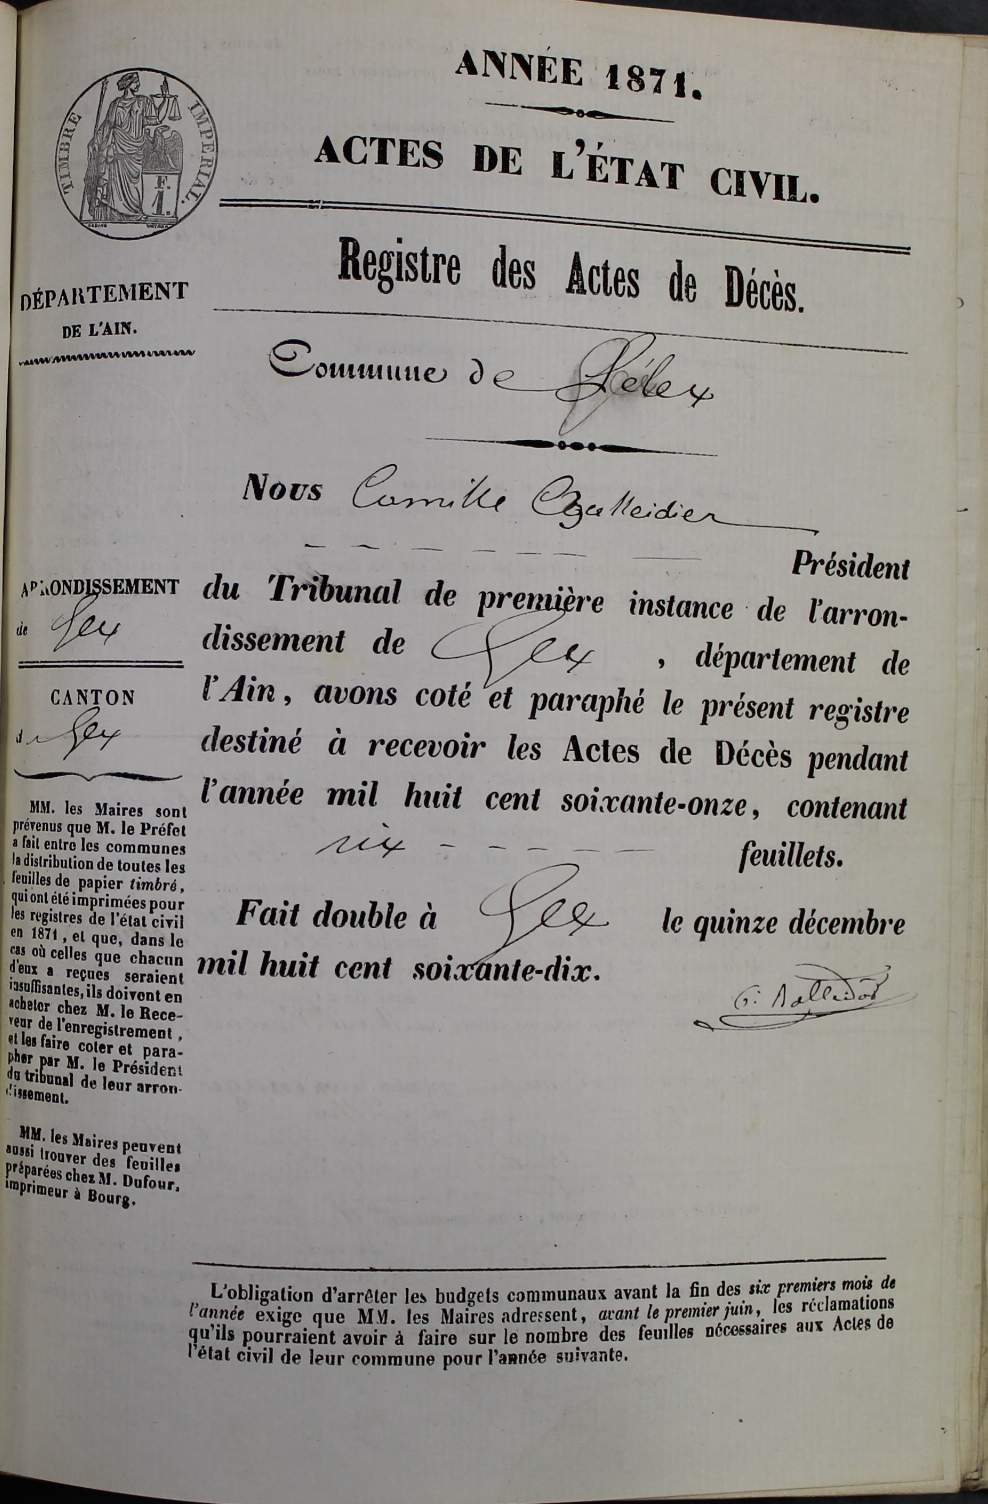 ANNÉE 1871.
ACTES DE L'ÉTAT CIVIL.
TIMBRE IMPERIAL.
F.
1.
Registre des Actes de Décès.
DÉPARTEMENT
DE L'AIN.
Commune de Lélex
Nous Camille
Président
du Tribunal de première instance de l'arron-
dissement de Gex, département de
l'Ain, avons coté et paraphé le présent registre
destiné à recevoir les Actes de Décès pendant
l'année mil huit cent soixante-onze, contenant
six feuillets.
Fait double à Gex le quinze décembre
mil huit cent soixante-dix.
ARRONDISSEMENT
de Gex
CANTON
de Gex
MM. les Maires sont
prévenus que M. le Préfet
a fait entre les communes
la distribution de toutes les
feuilles de papier timbré,
qui ont été imprimées pour
les registres de l'état civil
en 1871, et que, dans le
cas où celles que chacun
d'eux a reçues seraient
insuffisantes, ils doivent en
acheter chez M. le Rece-
veur de l'enregistrement,
et les faire coter et para-
pher par M. le Président
du tribunal de leur arron-
dissement.
MM. les Maires peuvent
aussi trouver des feuilles
préparées chez M. Dufour,
imprimeur à Bourg.
L'obligation d'arrêter les budgets communaux avant la fin des six premiers mois de
l'année exige que MM. les Maires adressent, avant le premier juin, les réclamations
qu'ils pourraient avoir à faire sur le nombre des feuilles nécessaires aux Actes de
l'état civil de leur commune pour l'année suivante.